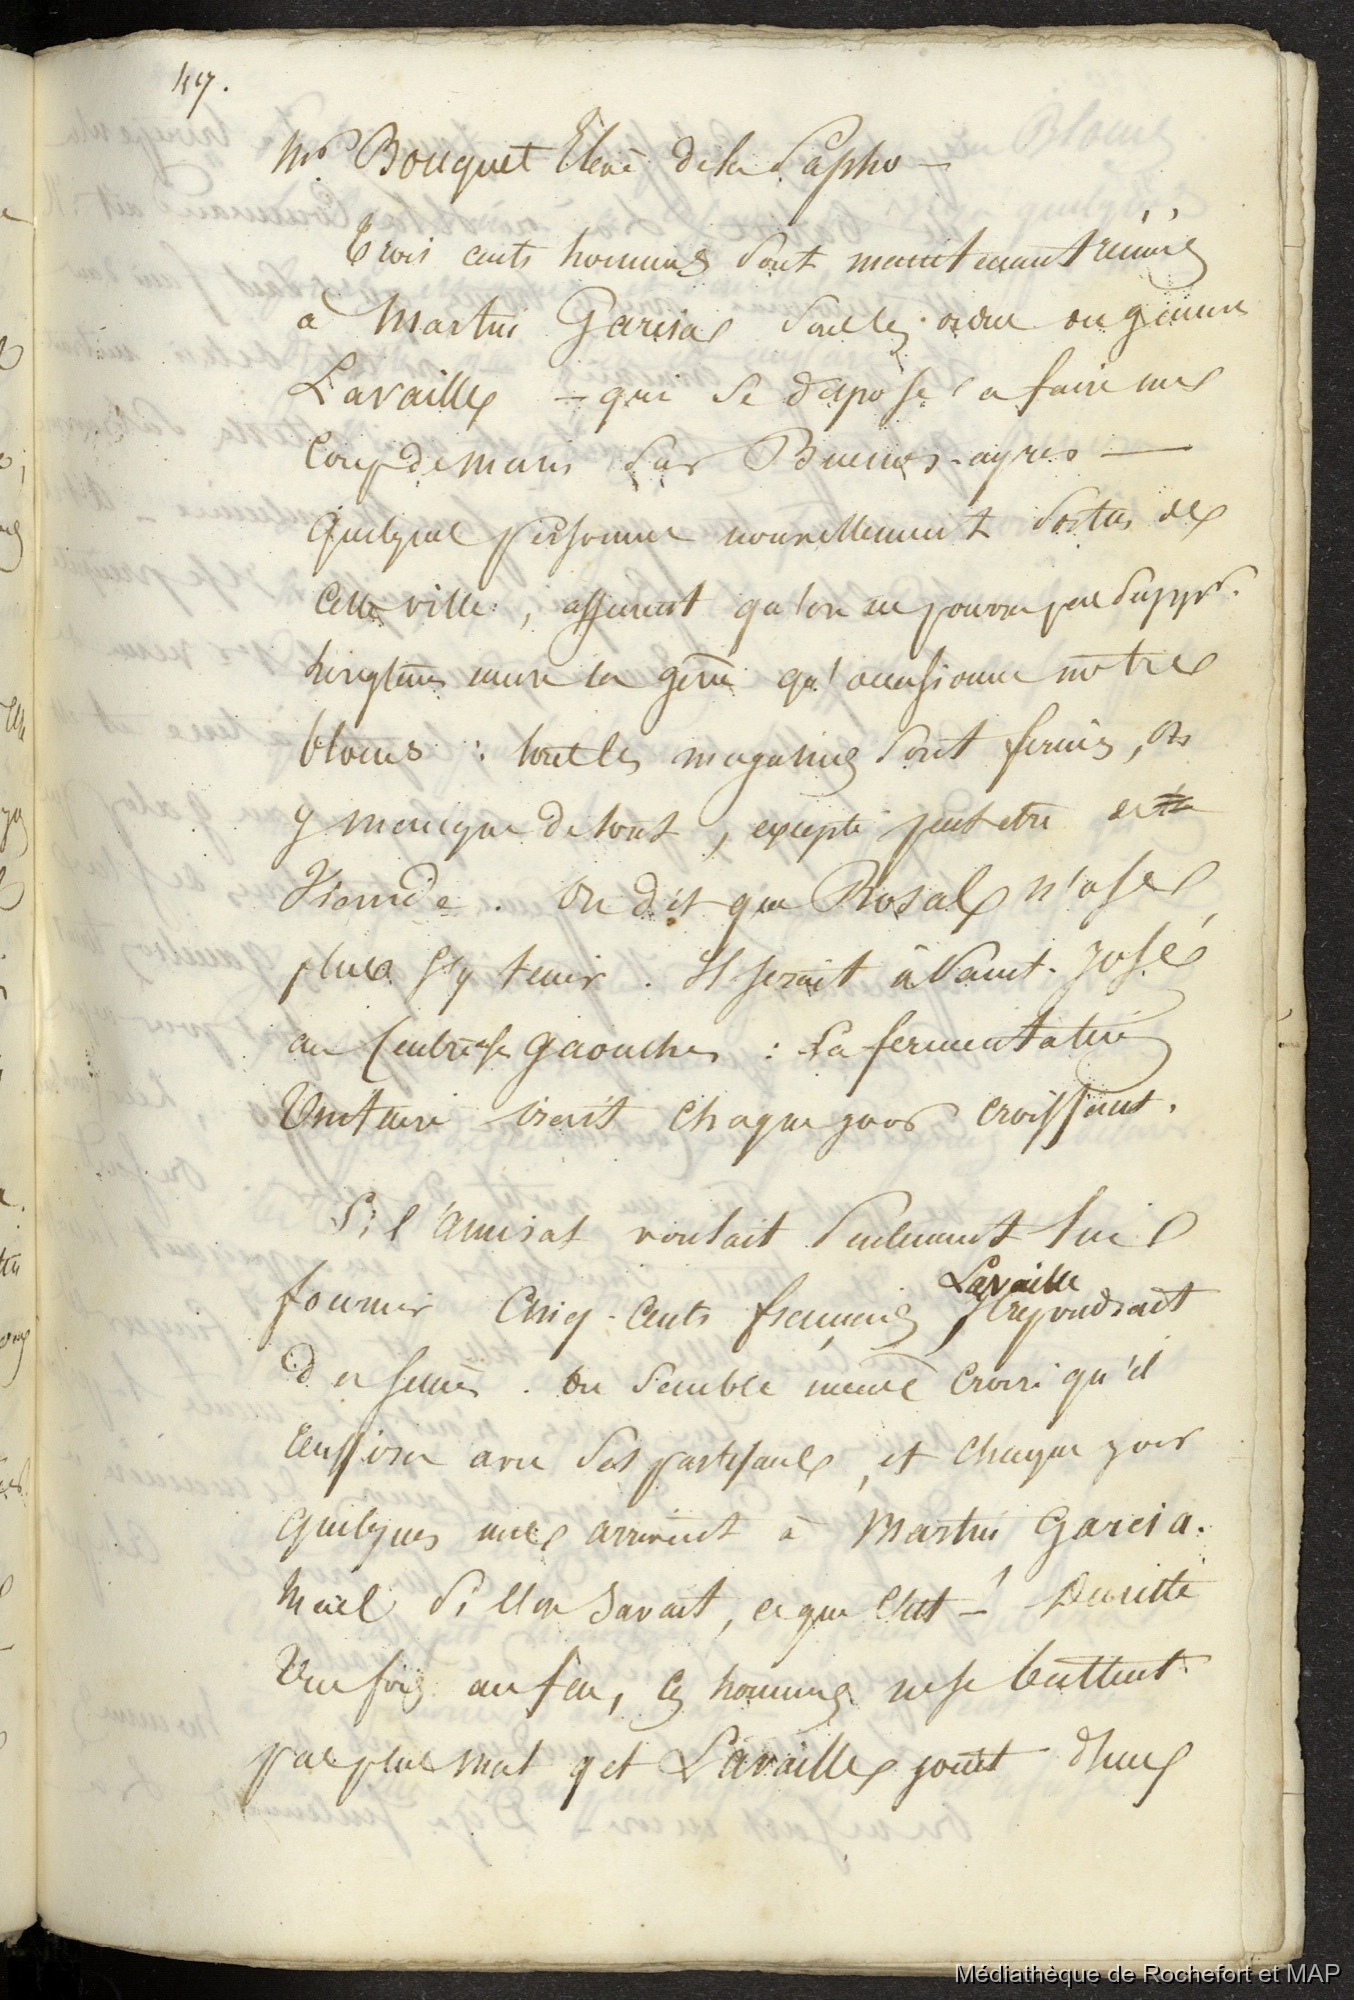 47.
Mr. Bouquet Elevé de la Sapho —
Trois cents hommes sont maintenant réunis
à Martin Garcia sous les ordres du général
Lavaille — qui se dispose a faire un
Coup de main sur Buenos-ayres —
quelques personnes nouvellement sorties de
cette ville, assurent qu'on ne pourra pas supprr.
longtems encore la gêne qu'occasionne notre
blocus : tout les magasins sont fermés, on
y manque de tout, excepté peut etre de
viande. On dit que Rosas n'ose
plus s'y tenir. Il serait à Saint-José
au Centre des gaouches : la fermentation
Unitaire irait chaque jour croissant.
Si l'amiral voulait seulement lui
fournir Cinq-Cents français Lavaille repondrait
du succès. On semble même croire qu'il
ses partisans, et chaque jour
quelques uns arrivent à Martin Garcia.
Mais si l'on savait, ce que c'est —! Ensuite
Une fois au feu, ces hommes ne se battent
pas plus mal qet Lavaille jouit d'une
Médiathèque de Rochefort et MAP